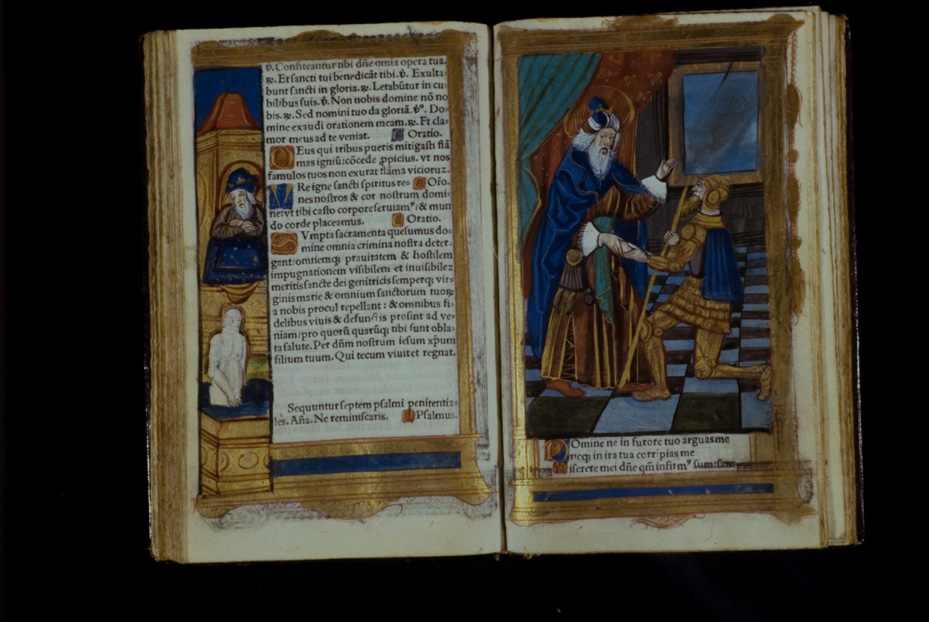 v̄. Confiteantur tibi dñe omĩa opera tua.
℞. Et sancti tui benedicãt tibi. v̄. Exulta-
bunt sancti in gloria. ℞. Letabũtur in cu-
bilibus suis. v̄. Non nobis domine nõ no
bis. ℞. Sed nomini tuo da gloriã. v̄. Do-
mine exaudi orationem meam. ℞. Et cla-
mor meus ad te veniat. Oratio.
DEus qui tribus pueris mitigasti flã
mas igniũ: cõcede ꝓpicius. vt nos
famulos tuos non exurat flãma vicioruz.
VRe igne sancti spiritus re- Oro.
nes nostros & cor nostrum domi-
ne: vt tibi casto corpore seruiamꝰ/ & mun
do corde placeamus. Oratio.
SVmpta sacramenta quesumus do-
mine omnia crimina nostra deter-
gant/ omnemqꝫ prauitatem & hostilem
impugnationem visibilem et inuisibilez
meritis sancte dei genitricis semperqꝫ vir-
ginis marie & omnium sanctorum tuoꝝ
a nobis procul repellant: & omnibus fi-
delibus viuis & defunctis prosint ad ve-
niam/ pro quorũ quarũqꝫ tibi sunt obla-
ta salute. Per dñm nostrum iesum xp̃um
filium tuum. Qui tecum viuit et regnat.
Sequuntur septem psalmi penitentia-
les. Aña. Ne reminiscaris. Psalmus.
DOmine ne in furore tuo arguas me
neqꝫ in ira tua corripias me
Miserere mei dñe qm̃ infirmꝰ sum: sana